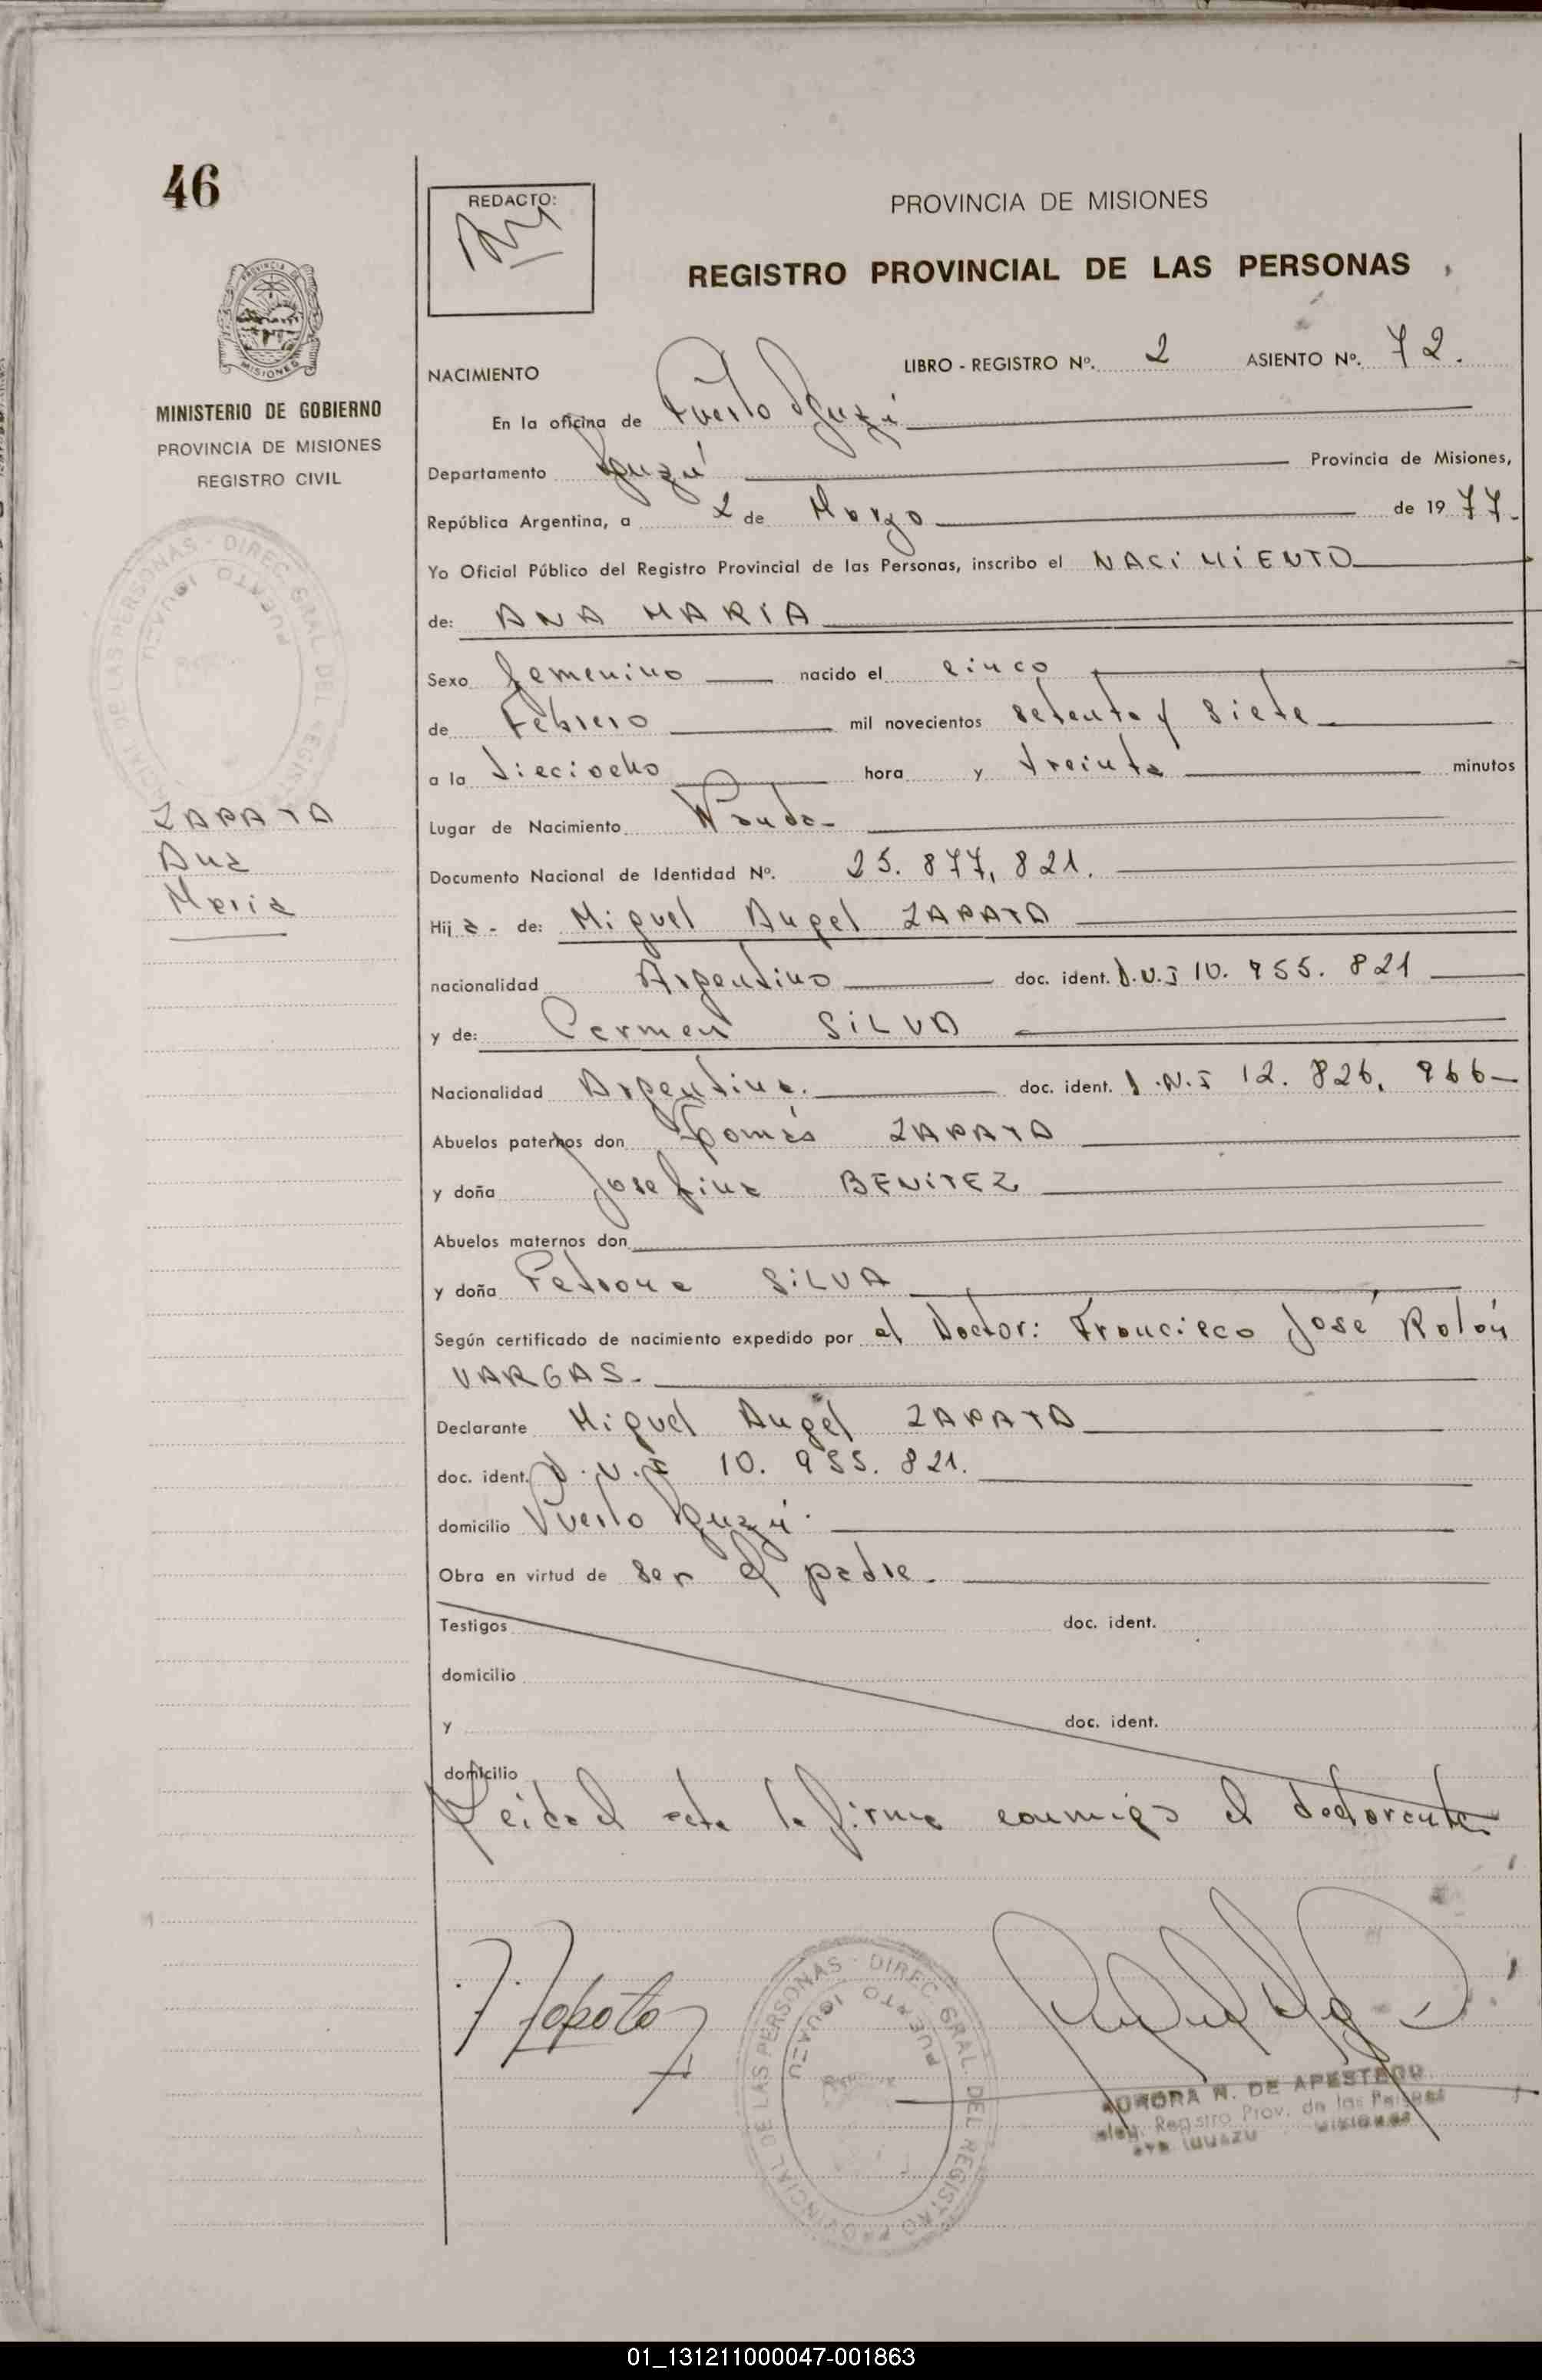 46
REDACTO:
PROVINCIA DE MISIONES
REGISTRO PROVINCIAL DE LAS PERSONAS
PROVINCIA DE MISIONES
MINISTERIO DE GOBIERNO
PROVINCIA DE MISIONES
REGISTRO CIVIL
DIREC. GRAL. DEL REGISTRO PROVINCIAL DE LAS PERSONAS
PUERTO IGUAZU
ZAPATA
Ana
Maria
NACIMIENTO LIBRO - REGISTRO Nº. 2 ASIENTO Nº. 72.
En la oficina de Puerto Iguazú
Departamento Iguazú Provincia de Misiones,
República Argentina, a 2 de Marzo de 1977.
Yo Oficial Público del Registro Provincial de las Personas, inscribo el NACIMIENTO
de: ANA MARIA
Sexo femenino nacido el cinco
de Febrero mil novecientos setenta y siete
a la dieciocho hora y treinta minutos
Lugar de Nacimiento Wanda
Documento Nacional de Identidad Nº. 25.877.821.
Hija de: Miguel Angel ZAPATA
nacionalidad Argentino doc. ident. D.N.I 10.955.821
y de: Carmen SILVA
Nacionalidad Argentina. doc. ident. D.N.I 12.826.966
Abuelos paternos don Tomás ZAPATA
y doña Josefina BENITEZ
Abuelos maternos don
y doña Petrona SILVA
Según certificado de nacimiento expedido por el Doctor: Francisco José Rolón
VARGAS.
Declarante Miguel Angel ZAPATA
doc. ident. D.N.I 10.955.821.
domicilio Puerto Iguazú.
Obra en virtud de ser el padre.
Testigos doc. ident.
domicilio
y doc. ident.
domicilio
Leida el acta la firma conmigo el
Zapata
DIREC. GRAL. DEL REGISTRO PROVINCIAL DE LAS PERSONAS
PUERTO IGUAZU
AURORA N. DE APESTEGU
Registro Prov. de las
IGUAZU MISIONES
01_131211000047-001863